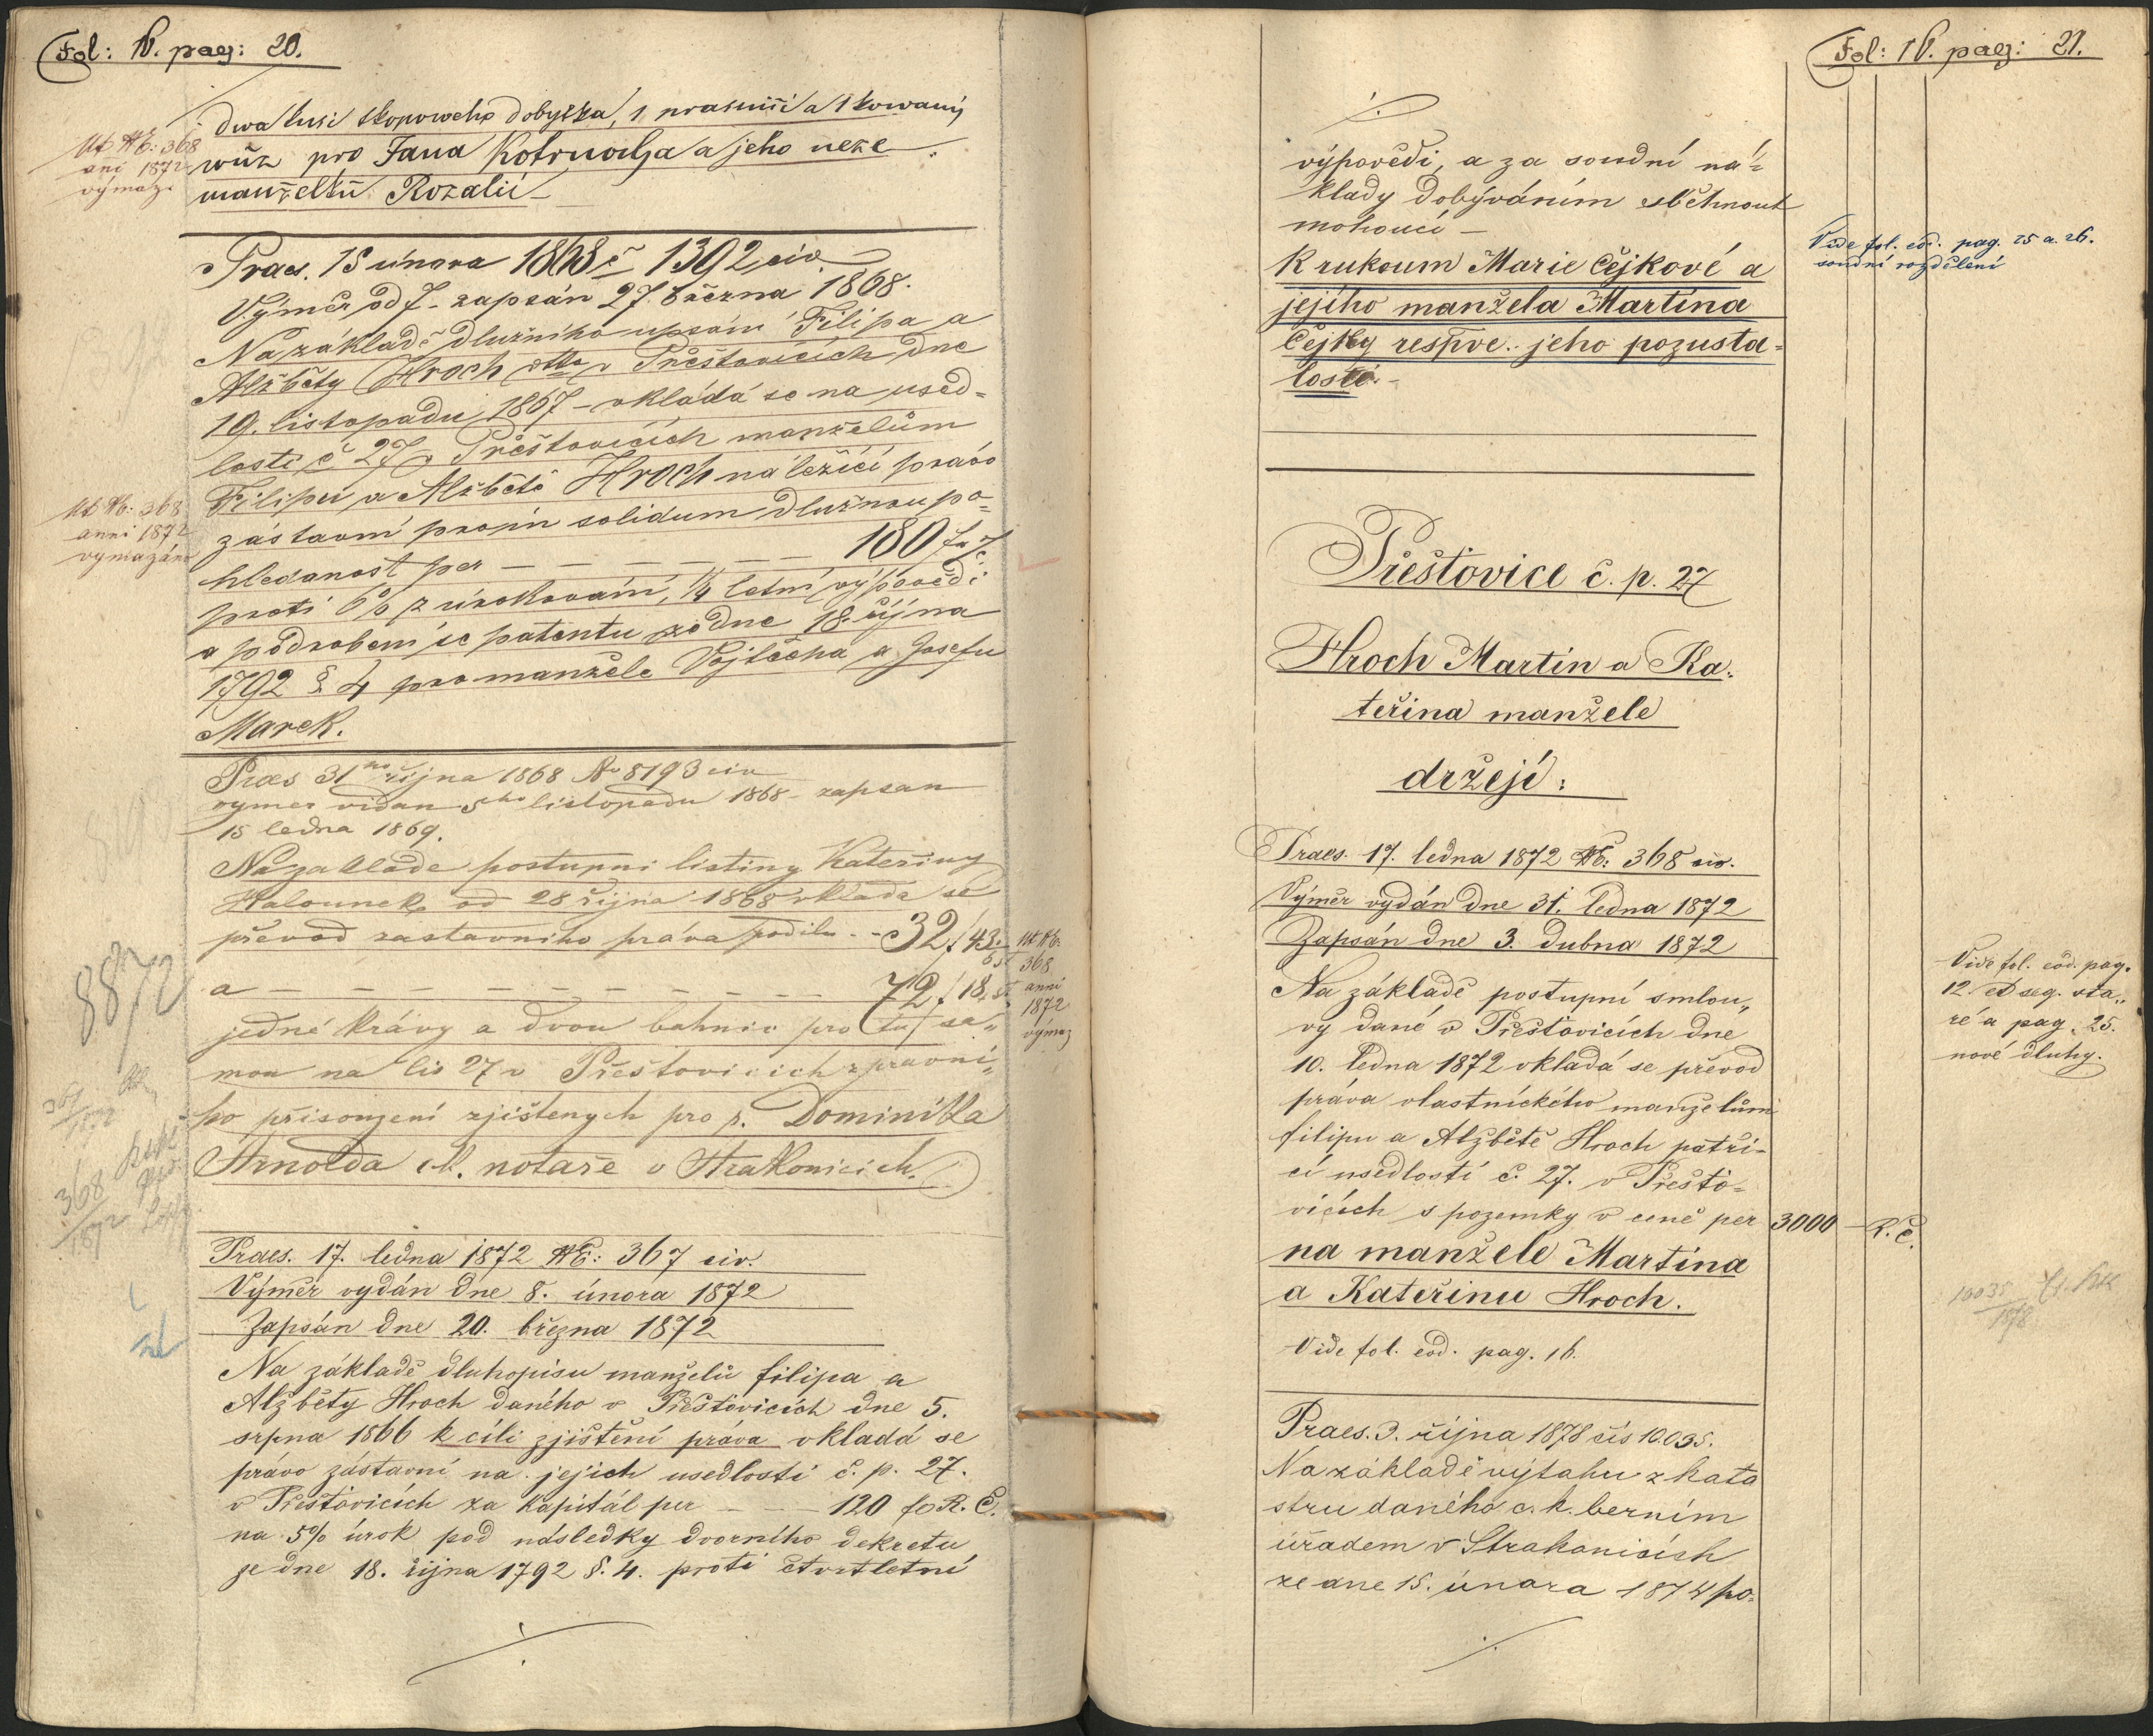 Fol: IV. pag: 20.
dwa kusi skopoweho dobytka, 1 prasnici a 1 kowany
wůz pro Jana Kotrnocha a jeho neže
manželku Rozalii
Ut NE: 368
ani 1872
výmaz
Praes. 15 února 1868 č 1392 civ
Výměr od 7. zapsán 27. března 1868.
Na základě dlužního upsání Filipa a
Alžběty Hroch dtto v Přešťovicích dne
19. listopadu 1867 – vkládá se na used=
losti č 27 v Přešťovicích manželům
Filipu a Alžbětě Hroch náležící právo
zástavní pro in solidum dlužnou po=
hledanost per — — — — — 180 f r č
proti 6% zúrokování, 1/4 letní výpovědi
a podrobení se patentu ze dne 18. října
1792 § 4 pro manžele Vojtěcha a Josefu
Marek.
Ut NE: 368
anni 1872
vymazáno
Praes 31ho října 1868 No 8193 civ
vymer vidan 5ho listopadu 1868 – zapsan
15 ledna 1869.
Na zaklade postupni listiny Kateřiny
Halounek od 28 října 1868 vklada se
převod zastavniho práva podilu - - 32 f 43
a — — — — — — — — 72 f 18
jedné krávy a dvou bahnic pro tu sa„
mou na čís 27 v Přeštovicich z pravni„
ho přisouzení zjištenych pro p. Dominikla
Arnolda ck. notaře v Strakonicich.
Ut NE:
368
anni
1872
výmaz
8872
368
1872
Praes. 17. ledna 1872 NE: 367 civ.
Výměr vydán dne 8. února 1872
Zapsán dne 20. března 1872
Na základě dluhopisu manželů filipa a
Alžběty Hroch daného v Přešťovicích dne 5.
srpna 1866 k cíli zjištění práva vkladá se
právo zástavní na jejich usedlosti č. p. 27.
v Přešťovicích za kapitál per — — 120 f R. Č.
na 5% úrok pod následky dvorního dekretu
ze dne 18. října 1792 §. 4. proti čtvrtletní
Fol: IV. pag: 21.
výpovědi, a za soudní ná=
klady dobýváním sběhnout
mohoucí —
K rukoum Marie Čejkové a
jejího manžela Martina
Čejky respve. jeho pozusta=
losti. –
Vide fol. eod. pag. 25 a. 26.
soudní rozdělení
Přešťovice č. p. 27
Hroch Martin a Ka„
teřina manžele
držejí:
Praes. 17. ledna 1872 NE: 368 civ.
Výměr vydán dne 31. ledna 1872
Zapsán dne 3. dubna 1872
Na základě postupní smlou„
vy dané v Přešťovicích dne
10. ledna 1872 vkladá se převod
práva vlastnického manželům
filipu a Alžbětě Hroch patří-
cí usedlostí č. 27. v Přešťo=
vicích s pozemky v ceně per 3000 — R. Č.
na manžele Martina
a Kateřinu Hroch.
Vide fol. eod. pag. 16.
Vide fol. eod. pag.
12. et seq. sta„
ré a pag. 25.
nové dluhy.
10035
1878
Praes. 3. října 1878 čís 10.035.
Na základě výtahu z kata
stru daného c. k. berním
úřadem v Strakonicích
ze dne 15. února 1874 po=